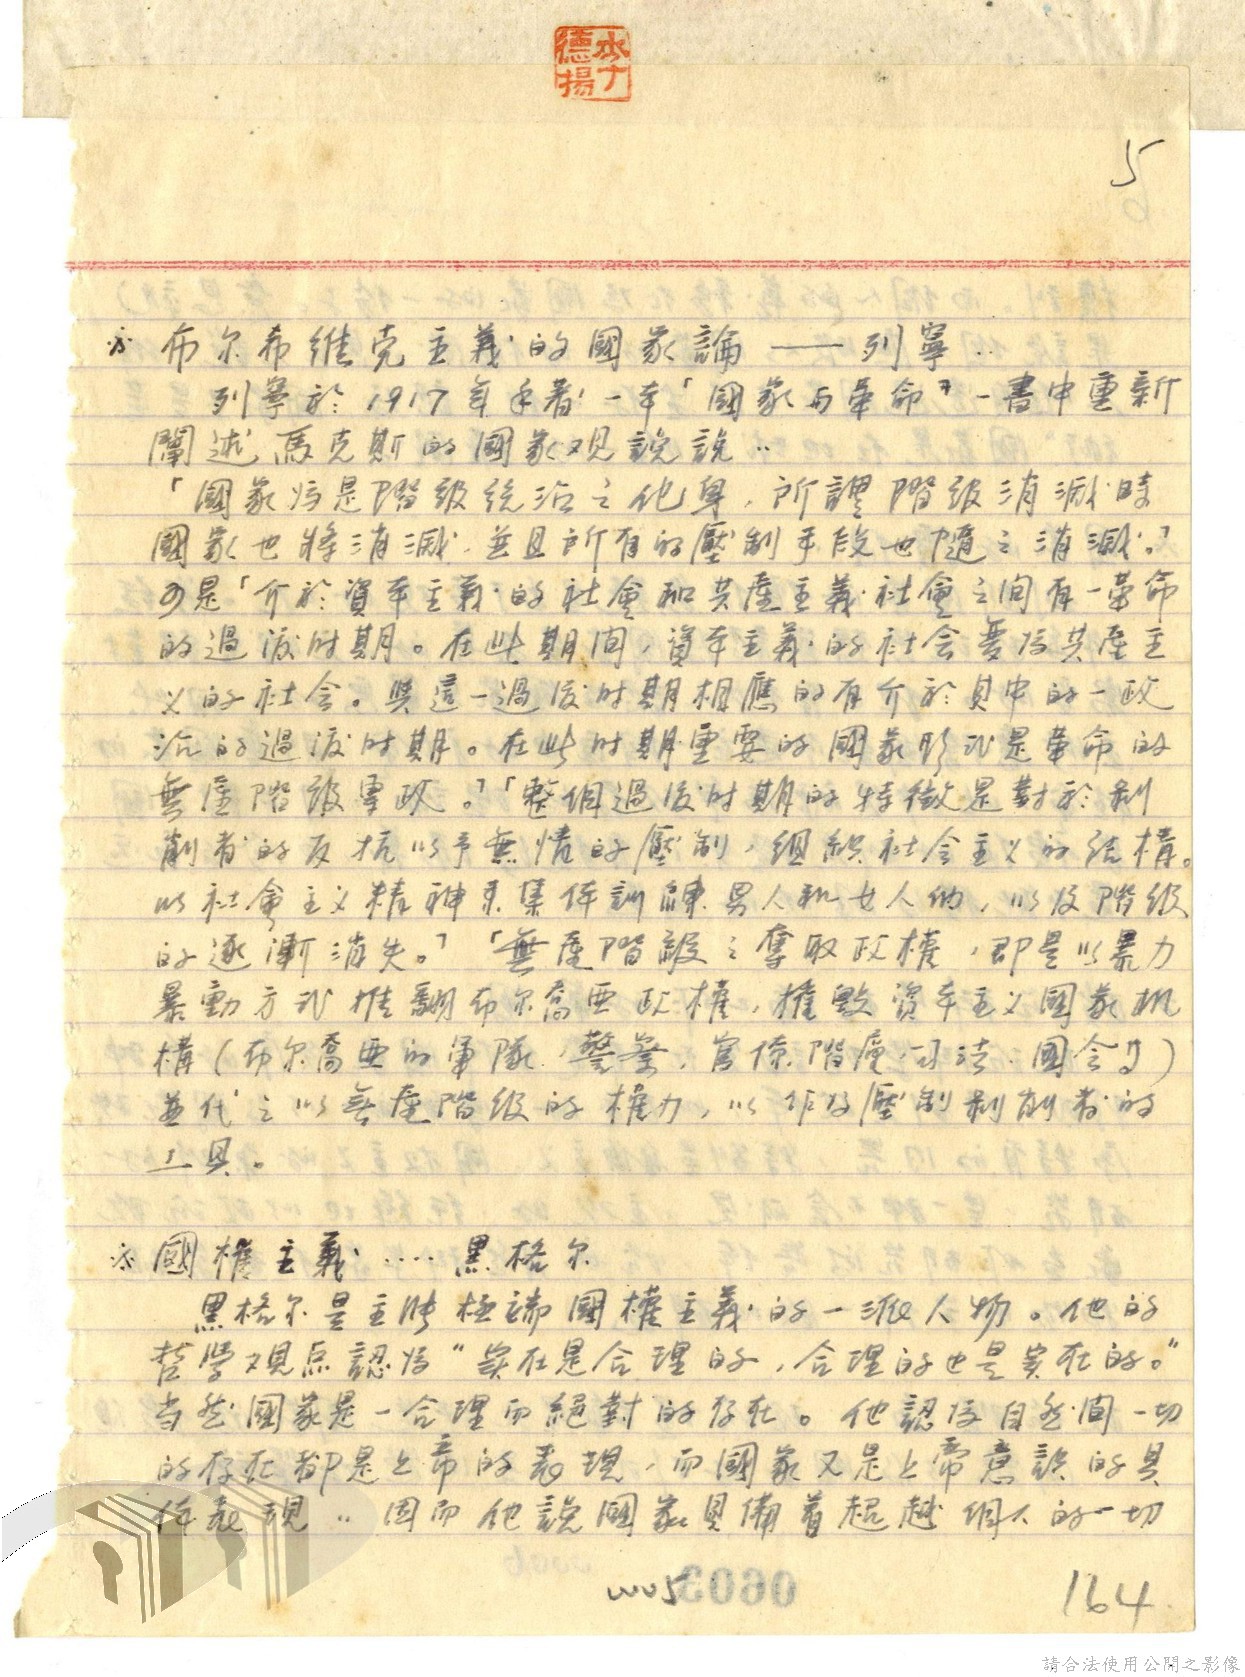 德揚
5
布尔希維克主義的國家論——列寧..
列寧於1917年手著一本「國家与革命」一書中重新
闡述馬克斯的國家观說說..
「國家為是階級統治之化身,所謂階級消滅時
國家也將消滅,並且所有的壓制手段也隨之消滅。」
可是「介於資本主義的社會和共產主義社會之间有一革命
的過渡时期。在此期间,資本主義的社会要為共產主
义的社会。與這一過渡时期相應的有介於其中的一政
治的過渡时期。在此时期重要的國家形式是革命的
無產階級專政。」「整個過渡时期的特徵是對於剝
削者的反抗以予無情的壓制,組織社会主义的结構。
以社會主义精神來集体訓練男人和女人们,以及階级
的逐漸消失。」「無產階級之奪取政權,即是以暴力
暴動方式推翻布尔喬亞政權,摧毀資本主义國家机
構(布尔喬亞的軍隊,警察,官僚階層,司法,國会等)
並代之以無產階級的權力,以作為壓制剝削者的
工具。
國權主義....黑格尔
黑格尔是主張極端國權主義的一派人物。他的
哲學观点認為"实在是合理的,合理的也是实在的。"
当然國家是一合理而絕對的存在。他認為自然间一切
的存在都是上帝的表現,而國家又是上帝意識的具
体表現..因而他說國家具備着超越個人的一切
0603
164
請合法使用公開之影像